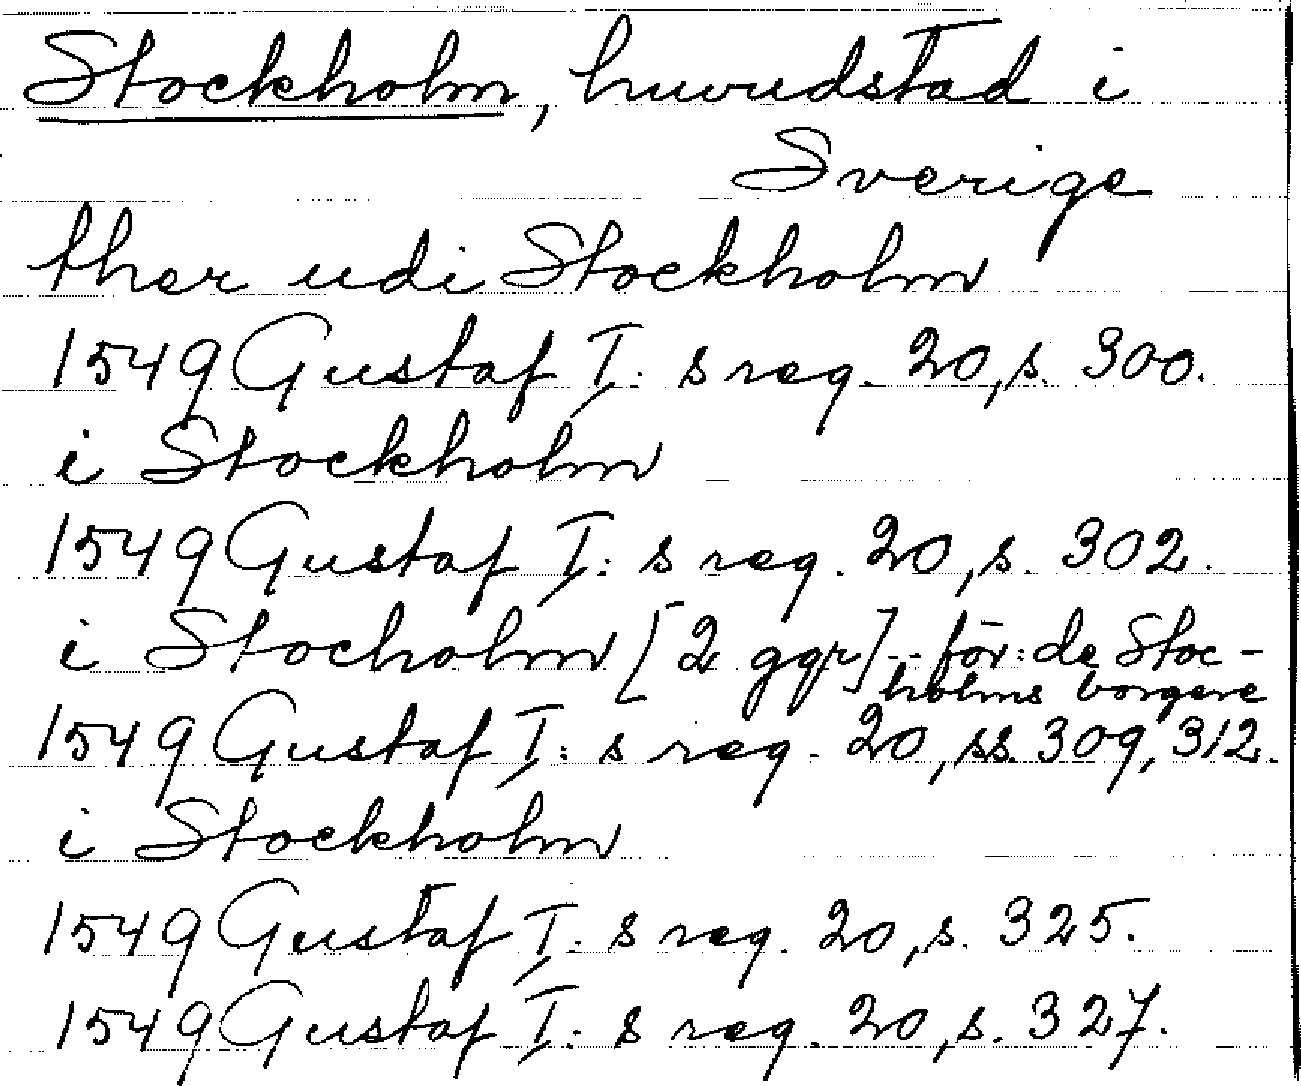 Stockholm, huvudstad i
Sverige
ther udi Stockholm
1549 Gustaf I: s reg. 20, s. 300.
i Stockholm
1549 Gustaf I: s reg. 20, s. 302.
i Stocholm [2 ggr] -- för: de Stoc-
holms borgere
1549 Gustaf I: s reg. 20, ss. 309, 312.
i Stockholm
1549 Gustaf I: s reg. 20, s. 325.
1549 Gustaf I: s reg. 20, s. 327.